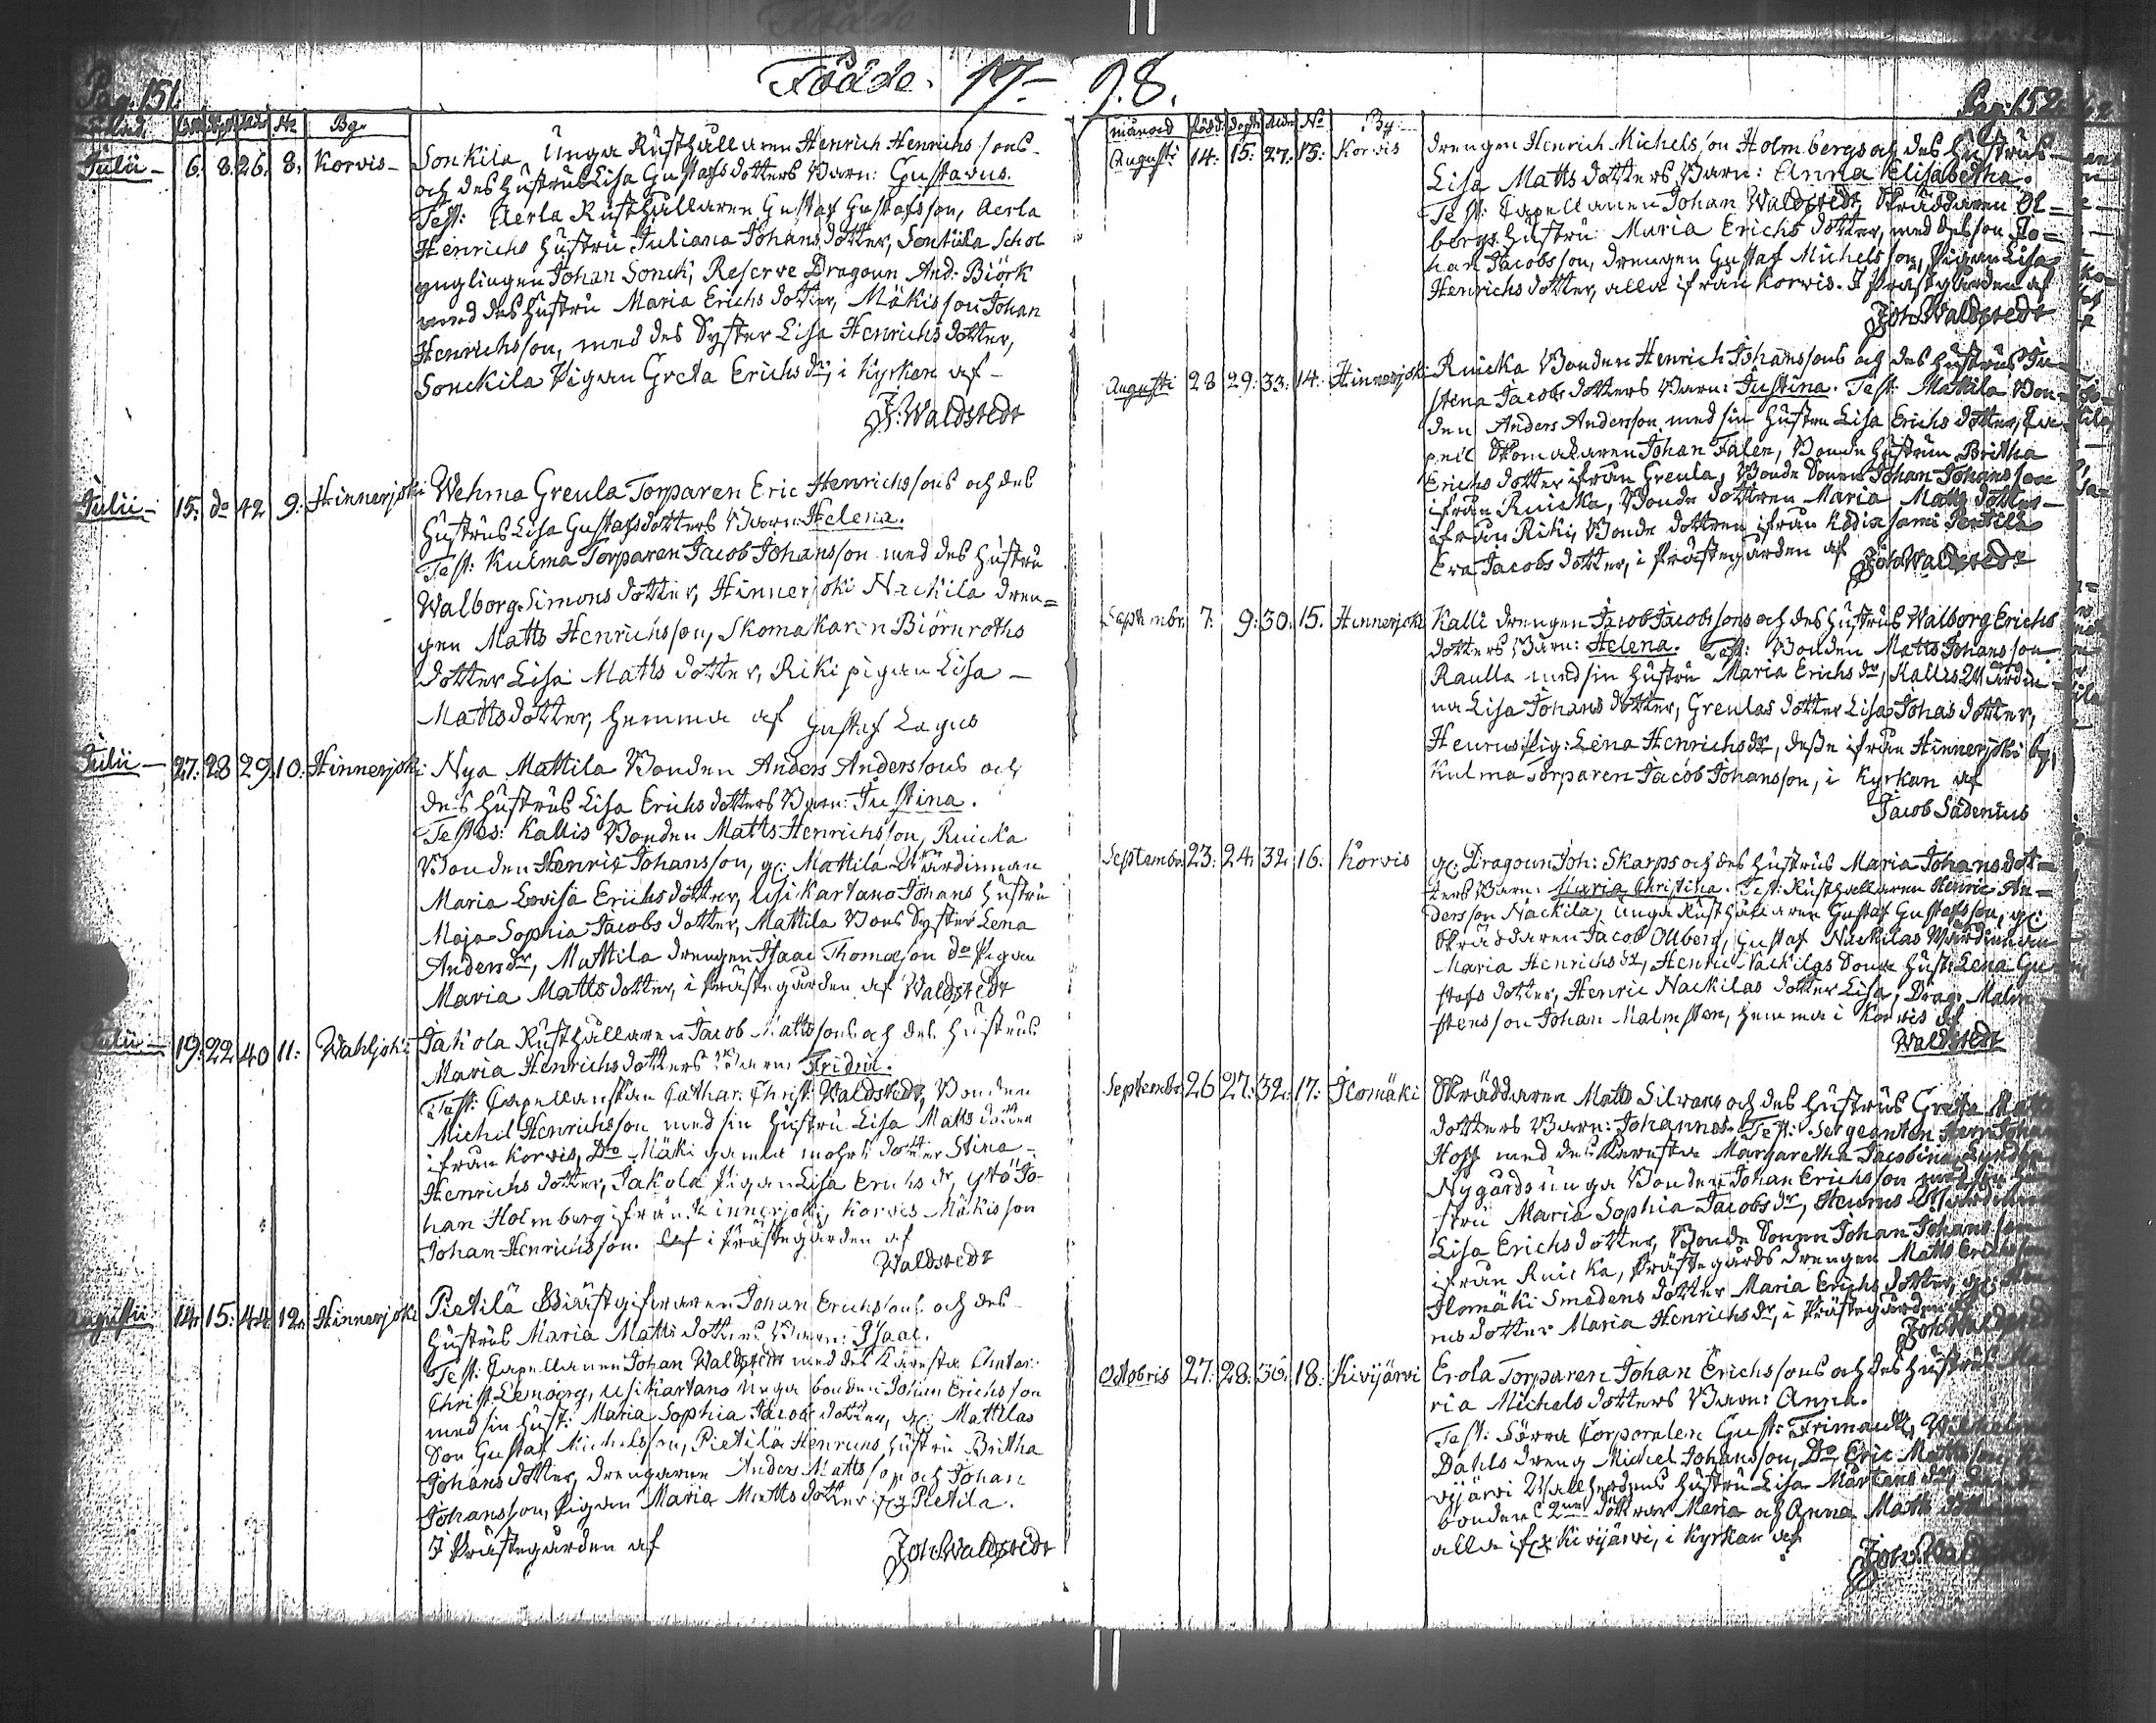 Födde. 17-98.
Pag. 151.
By
Julii – 6. 8. 26. 8. Korvis –
Sonkila Unga Rusthållaren Henrich Henrichssons
och des Hustrus Lisa Gustafsdotters Barn: Gustavus.
Test: Aerla Rusthållaren Gustaf Gustafsson, Aerla
Henrichs Hustru Juliana Johansdotter, Sontula Schol
ynglingen Johan Sonck, Reserve Dragoun And: Biörk
med des Hustru Maria Erichsdotter, Mäkis son Johan
Henrichsson, med des Syster Lisa Henrichsdotter,
Sonckila Pigan Greta Erichsdr, i Kyrkan af –
J. Waldstedt
Julii – 15. do 42 9. Hinnerjoki
Wehma Greula Torparen Eric Henrichssons och des
Hustrus Lisa Gustafsdotters Barn: Helena.
Test: Kulma Torparen Jacob Johansson med des Hustru
Walborg Simonsdotter, Hinnerjoki Nackila dren=
gen Matts Henrichsson, Skomakaren Biörnroths
dotter Lisa Matts dotter, Riki pigan Lisa –
Mattsdotter, hemma af Gustaf Lagus
Julii – 27. 28 29 10. Hinnerjoki
Nya Mattila Bonden Anders Anderssons och
des Hustrus Lisa Erichsdotters Barn: Justina.
Testes: Kallis Bonden Matts Henrichsson, Ruicka
Bonden Henric Johansson, gl: Mattila Wärdinnan
Maria Lovisa Erichsdotter, Usikartano Johans Hustru
Maja Sophia Jacobsdotter, Mattila Bons Syster Lena
Andersdr, Mattila drengen Isaac Thomasson do Pigan
Maria Mattsdotter, i Prästegården af Waldstedt
Julii – 19. 22 40 11. Wahljoki
Jakola Rusthållaren Jacob Mattssons och des Hustrus
Maria Henrichsdotters Barn: Fridric.
Test: Capellanskan Cathar: Christ: Waldstedt, Bonden
Michel Henrichsson med sin Hustru Lisa Matts dotter
ifrån Korvis, Do Mäki gamla mohrs dotter Stina –
Henrichsdotter, Jakola Pigan Lisa Erichsdr, Jo-
han Holmberg ifrån Hinnerjoki, Korvis Mäkis son
Johan Henrichsson. i Prästegården af
Waldstedt
Augusti 14. 15. 44. 12. Hinnerjoki
Pietilä Giästgifvaren Johan Erichssons och des
Hustrus Maria Matts dotters Barn: Isaac.
Test: Capellanen Johan Waldstedt med des Käresta Chatar:
Christ: Lemberg, Usikartano Unga bonden Johan Erichsson
med sin Hust: Maria Sophia Jacobsdotter, gl: Mattilas
Son Gustaf Michelsson, Pietilä Henrics Hustru Britha
Johansdotter, drengarne Anders Mattsson och Johan
Johansson, Pigan Maria Mattsdotter Pietila.
I Prästegården af Joh: Waldstedt
Pag: 152
Månad Född Döpt No By
Augusti 14. 15. 27. 13. Korvis
Drengen Henrich Michelsson Holmbergs och des Hustrus –
Lisa Mattsdotters Barn: Anna Elisabetha.
Test: Capellanen Johan Waldstedt, Skräddaren Ol=
bergs Hustru Maria Erichsdotter, med des son Jo=
han Jacobsson, drengen Gustaf Michelsson, Pigan Lisa
Henrichsdotter, alla ifrån Korvis. I Prästgården af
Joh: Waldstedt
Augusti 28 29. 33. 14. Hinnerjoki
Ruicka Bonden Henrich Johanssons och des Hustrus Ju=
stena Jacobsdotters Barn: Justina. Test: Mattila Bon=
den Anders Andersson med sin Hustru Lisa Erichsdotter,
Skomakaren Johan Falen, Bonde Hustrun Britha
Erichsdotter ifrån Greula, Bonde Sonen Johan Johansson
ifrån Ruicka, Bonde dottren Maria Mattsdotter –
ifrån Riki, Bonde dottren ifrån Ködixsami Pertilä
Eva Jacobsdotter, i Prästegården af Joh: Waldstedt
Septembr. 7. 9. 30. 15. Hinnerjoki
Kalli drengen Jacob Jacobssons och des Hustrus Walborg Erichs
dotters Barn: Helena. Test: Bonden Matts Johansson
Raulla med sin Hustru Maria Erichsdr, Kallis Wärdin=
na Lisa Johansdotter, Greulas dotter Lisa Johasdotter,
Heurus Pig: Lena Henrichsdr, desse ifrån Hinnerjoki by,
Kulma Torparen Jacob Johansson, i Kyrkan af
Jacob Sadenius
Septembr. 23. 24. 32 16. Korvis
gl: Dragoun Joh: Skarps och des Hustrus Maria Johansdot=
ters Barn: Maria Christina. Test: Rusthållaren Henric An=
dersson Nackila, Unga Rusthållaren Gustaf Gustafsson, gl:
Skräddaren Jacob Ollberg, Gustaf Nackilas Wärdinnan
Maria Henrichsdr, Henric Nackilas Sons Hust: Lena Gu
stafsdotter, Henric Nackilas dotter Lisa, Drag: Malm
stens son Johan Malmsten, hemma i Korvis af
Waldstedt
Septembr. 26 27. 32. 17. Ilomäki
Skräddaren Matts Silwans och des Hustrus Greta Matts
dotters Barn: Johannes. Test: Sergeanten Herr
Hoff med des Käresta Margaretha Jacobina
Nygårds unga Bonden Johan Erichsson med
stru Maria Sophia Jacobsdr, Heurus
Lisa Erichsdotter, Bonde Sonen Johan Johansson
ifrån Ruicka, Prästegårds drengen Matts Erichsson
Ilomäki Smedens dotter Maria Erichsdotter, gl:
dotter Maria Henrichsdr, i Prästegården af
Joh: Waldstedt
Octobris 27. 28. 36. 18. Kivijärvi
Erola Torparen Johan Erichssons och des Hustrus Ma
ria Michelsdotters Barn: Anna.
Test: Förra Corporalen Gust: Friman
Dahls dreng Michel Johansson, Do Eric Mattsson,
vijärvi Hustru Lisa Mårtensdr,
bondens 2ne döttrar Maria och Anna Matts dotter
alla ifr: Kivijärvi, i Kyrkan af
Joh: Waldstedt